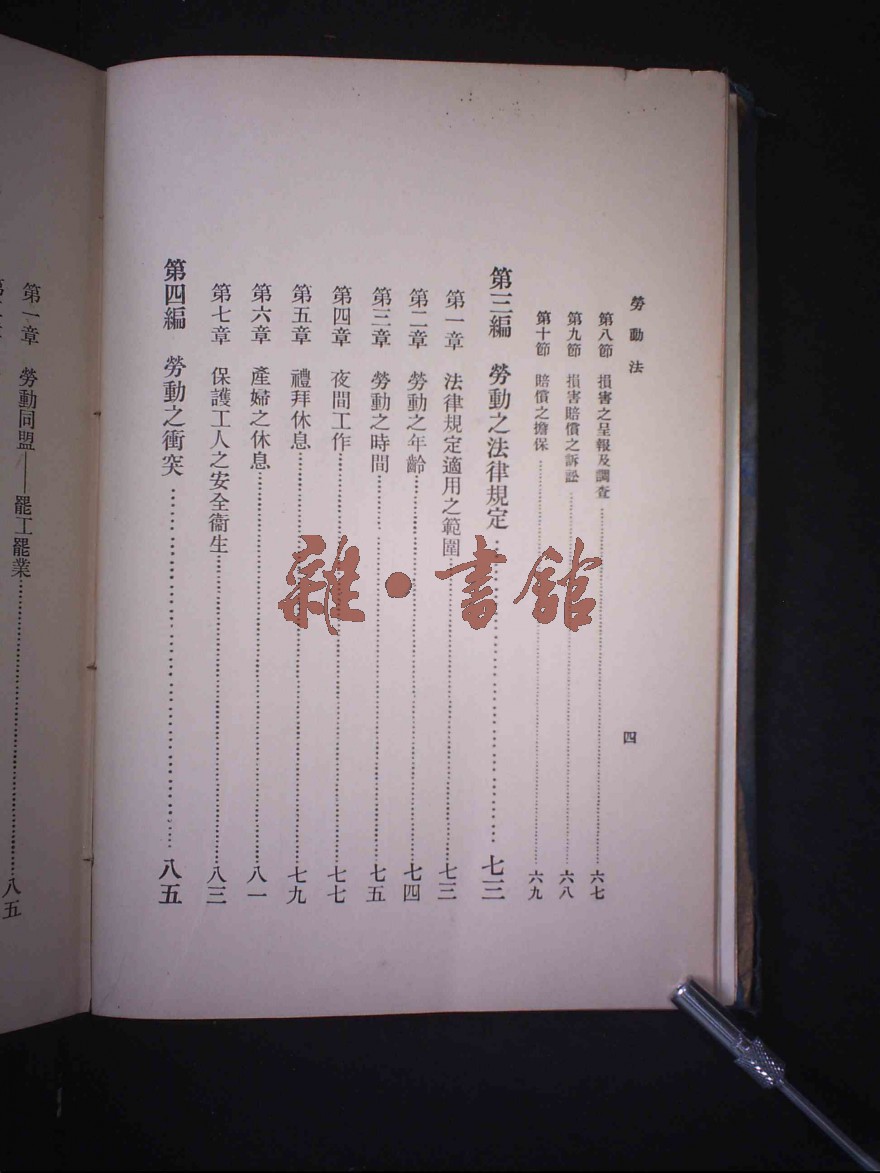 勞動法
四
第八節 損害之呈報及調查……六七
第九節 損害賠償之訴訟……六八
第十節 賠償之擔保……六九
第三編 勞動之法律規定……七三
第一章 法律規定適用之範圍……七三
第二章 勞動之年齡……七四
第三章 勞動之時間……七五
第四章 夜間工作……七七
第五章 禮拜休息……七九
第六章 產婦之休息……八一
第七章 保護工人之安全衞生……八三
第四編 勞動之衝突……八五
第一章 勞動同盟——罷工罷業……八五
雜·書館